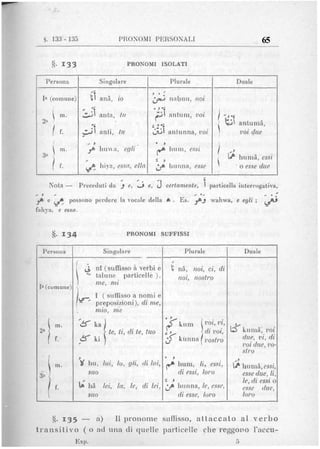 §. 133 - 135 PRONOMI PERSONALI 65
§. 133 PRONOMI ISOLATI
Persona Singolare Plurale Duale
Iª (comune) أَنَا anā, io نَحْنُ naḥnu, noi
2ª m. أَنْتَ anta, tu أَنْتُمْ antum, voi أَنْتُمَا antumā, voi due
f. أَنْتِ anti, tu أَنْتُنَّ antunna, voi
3ª m. هُوَ huwa, egli هُمْ hum, essi هُمَا humā, essi o esse due
f. هِيَ hiya, essa, ella هُنَّ hunna, esse
Nota — Preceduti da وَ e, فَ e, لَ certamente, أَ particella interrogativa,
هُوَ e هِيَ possono perdere la vocale della ه. Es. وَهْوَ wahwa, e egli; فَهْيَ
fahya, e esse.
§. 134 PRONOMI SUFFISSI
Persona Singolare Plurale Duale
Iª (comune) نِي nī (suffisso à verbi e talune particelle), me, mi نَا nā, noi, ci, di noi, nostro
ـِي ī (suffisso a nomi e preposizioni), di me, mio, me
2ª m. كَ ka te, ti, di te, tuo كُمْ kum voi, vi, di voi, vostro كُمَا kumā, voi due, vi, di voi due, vostro
f. كِ ki كُنَّ kunna
3ª m. هُ hu, lui, lo, gli, di lui, suo هُمْ hum, li, essi, di essi, loro هُمَا humā, essi, esse due, li, le, di essi o esse due, loro
f. هَا hā lei, la, le, di lei, suo هُنَّ hunna, le, esse, di esse, loro
§. 135 — a) Il pronome suffisso, attaccato al verbo
transitivo ( o ad una di quelle particelle che reggono l'accu-
Exp. 5